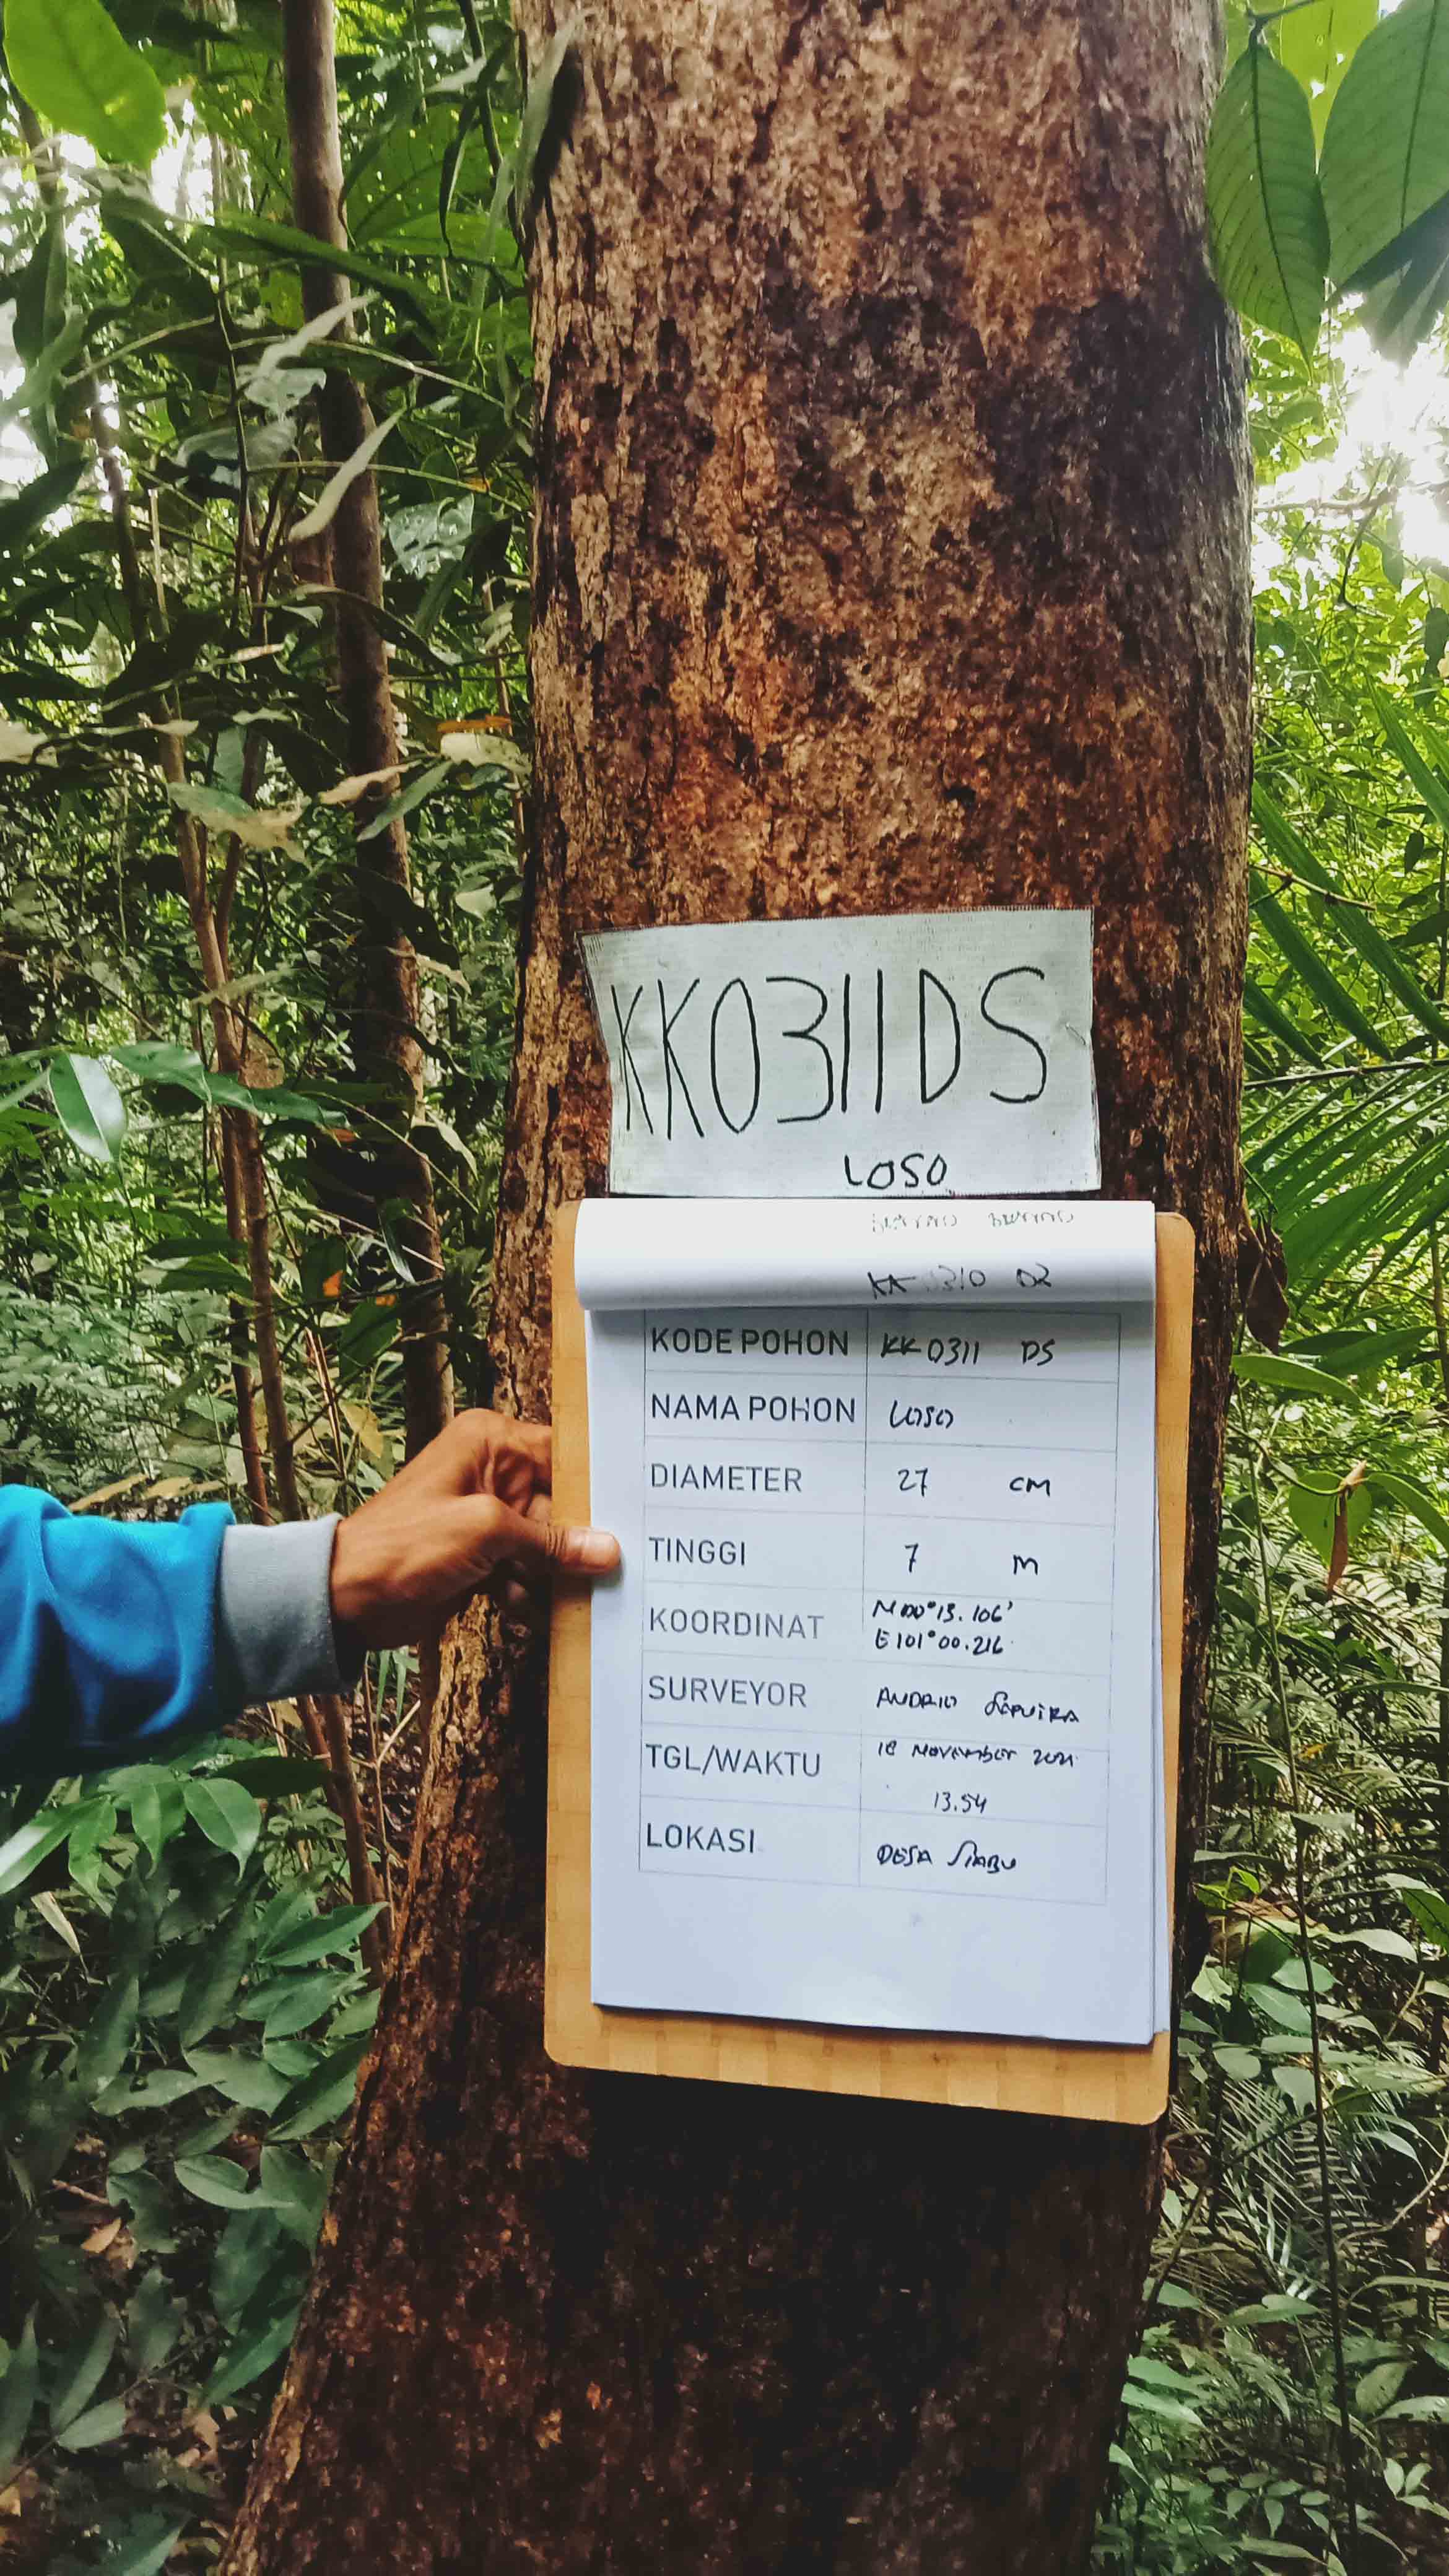 KK0311DS
LOSO
KK 0310 D2
KODE POHON KK 0311 DS
NAMA POHON LOSO
DIAMETER 27 CM
TINGGI 7 M
KOORDINAT N 00°13.106'
E 101°00.216
SURVEYOR ANDRIO SAPUTRA
TGL/WAKTU 18 NOVEMBER 2021
13.54
LOKASI DESA SIABU